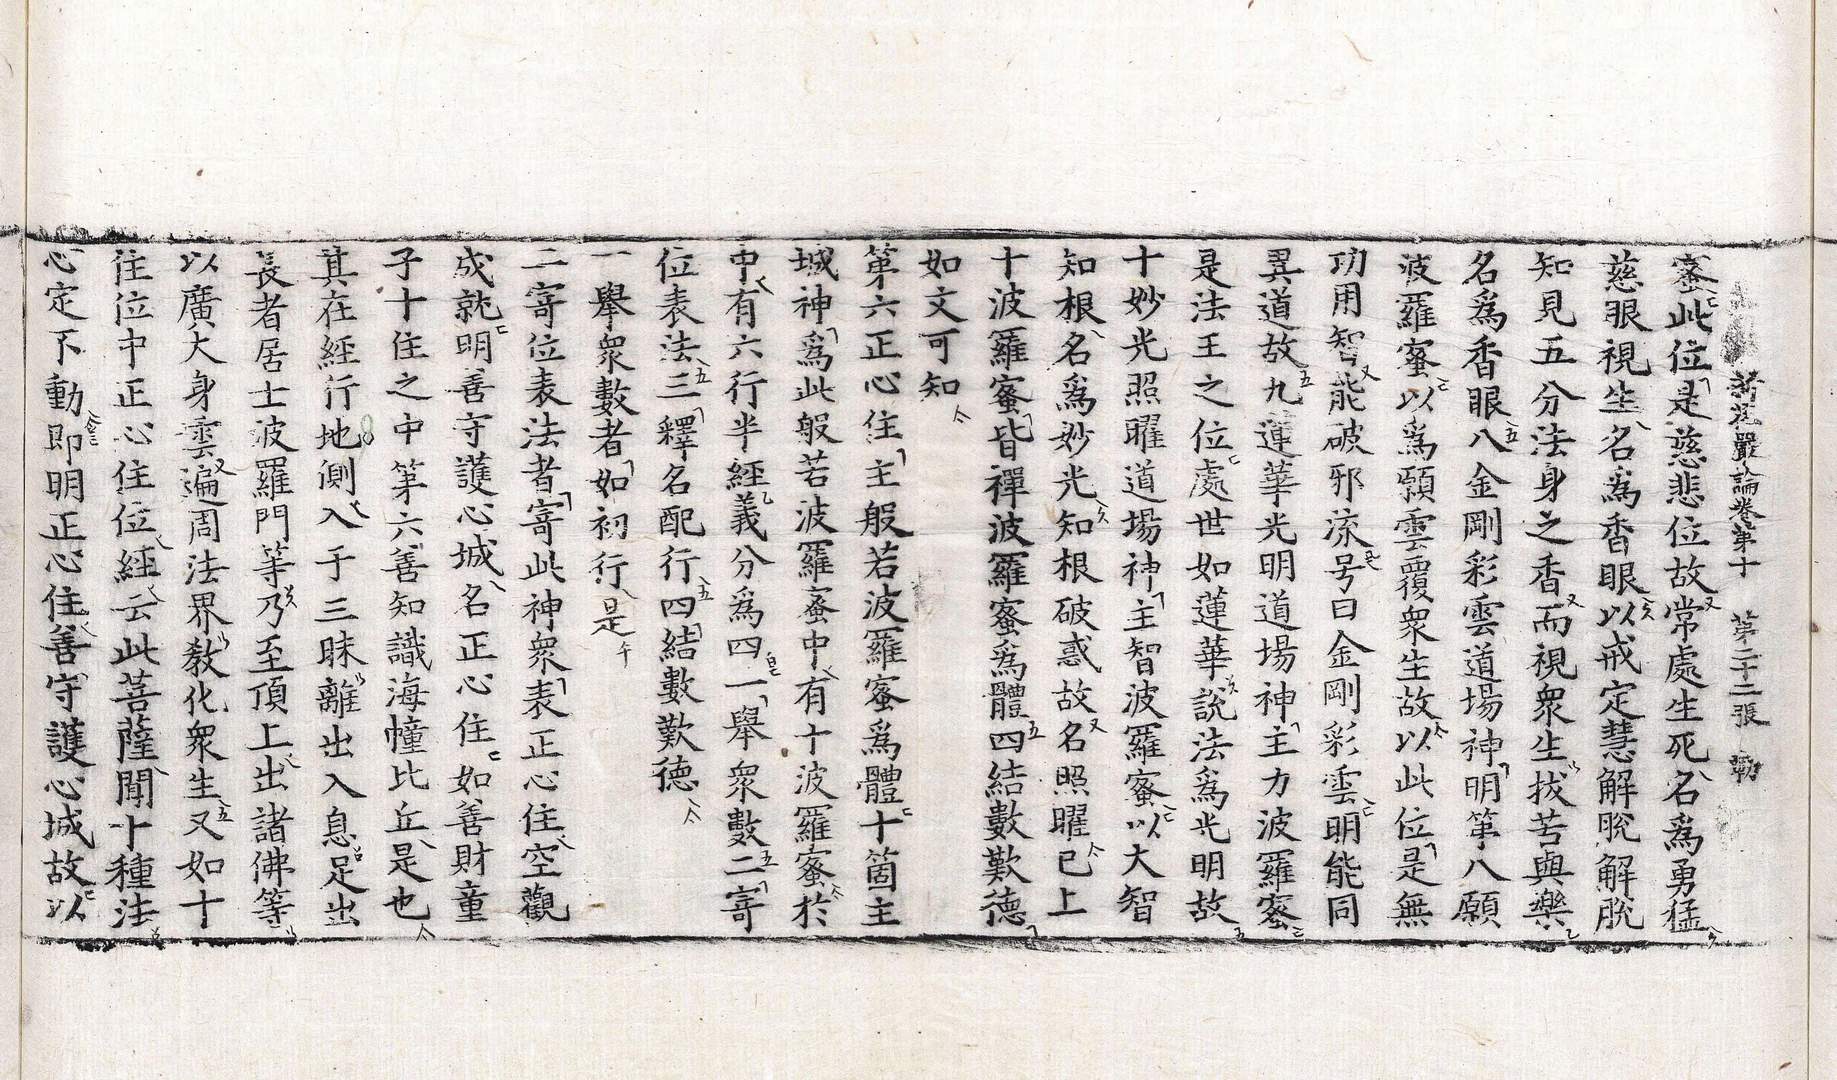 新花嚴論卷第十 第二十二張 勒
蜜此位是慈悲位故常處生死名爲勇猛
慈眼視生名爲香眼以戒定慧解脫解脫
知見五分法身之香而視衆生拔苦與樂
名爲香眼八金剛彩雲道場神明第八願
波羅蜜以爲願雲覆衆生故以此位是無
功用智能破邪流号曰金剛彩雲明能同
異道故九蓮華光明道場神主力波羅蜜
是法王之位處世如蓮華說法爲光明故
十妙光照曜道場神主智波羅蜜以大智
知根名爲妙光知根破惑故名照曜已上
十波羅蜜皆禪波羅蜜爲體四結數歎德
如文可知
第六正心住主般若波羅蜜爲體十箇主
城神爲此般若波羅蜜中有十波羅蜜於
中有六行半經義分爲四一舉衆數二寄
位表法三釋名配行四結數歎德
一舉衆數者如初行是
二寄位表法者寄此神衆表正心住空觀
成就明善守護心城名正心住如善財童
子十住之中第六善知識海幢比丘是也
其在經行地側入于三昧離出入息足出
長者居士波羅門等乃至頂上出諸佛等
以廣大身雲遍周法界教化衆生又如十
住位中正心住位經云此菩薩聞十種法
心定不動即明正心住善守護心城故以